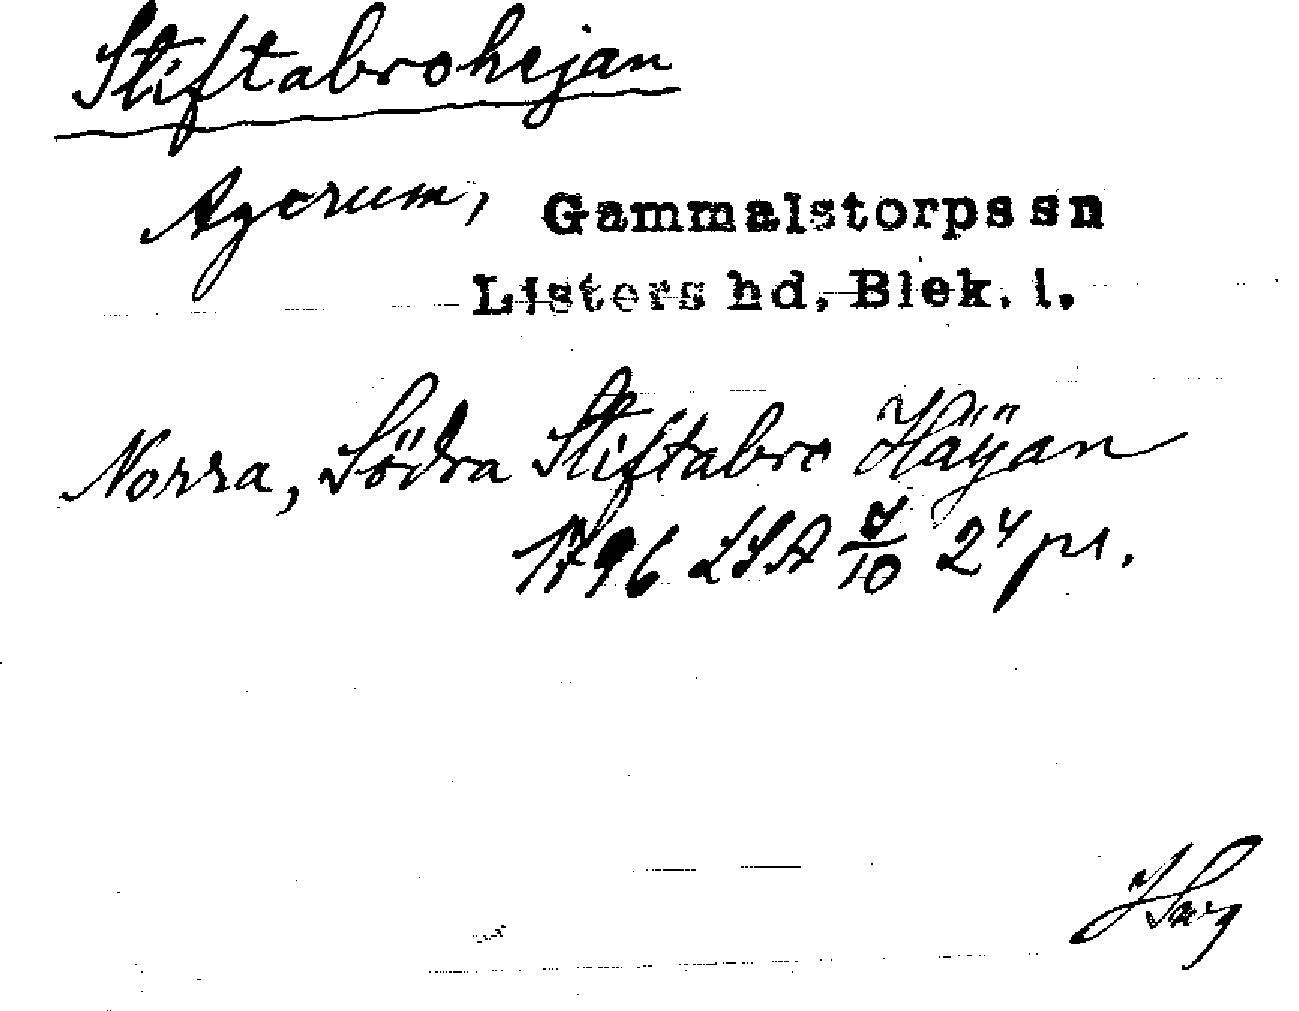 Stiftabrohejan
Agerum, Gammalstorps sn
Listers hd. Blek. l.
Norra, Södra Stiftabro Häÿan
1796 LSA 10 24 ps.